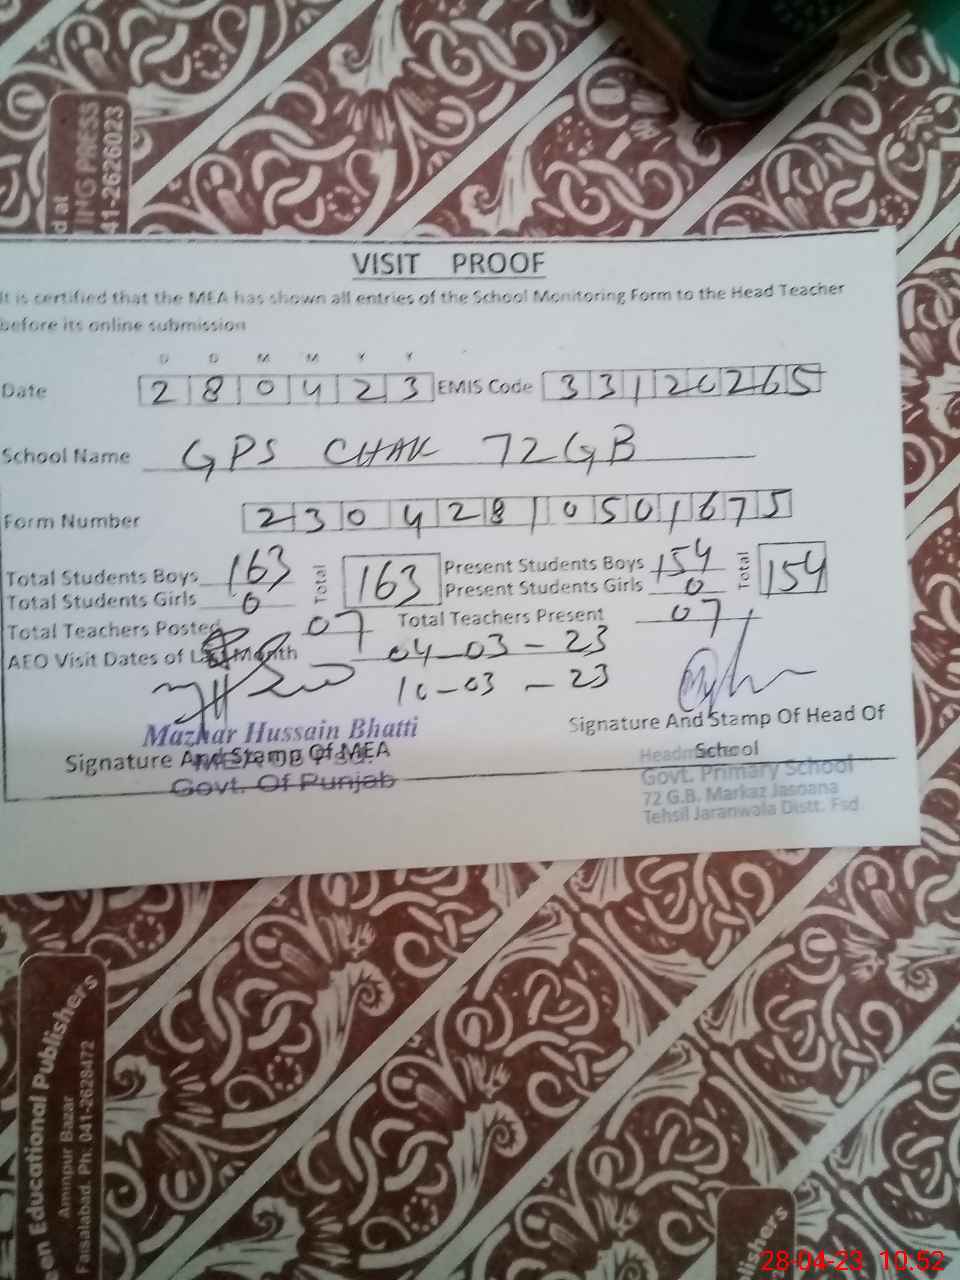 d at
ING PRESS
41-2626023
VISIT PROOF
It is certified that the MEA has shown all entries of the School Monitoring Form to the Head Teacher
before its online submission
D D M M Y Y
Date 280423 EMIS Code 33120265
School Name GPS CHAK 72GB
Form Number 23042810501675
Total Students Boys 163 Total 163 Present Students Boys 154 Total 154
Total Students Girls 0 Present Students Girls 0
Total Teachers Posted 07 Total Teachers Present 07
AEO Visit Dates of Last Month 04-03-23
10-03-23
Mazhar Hussain Bhatti
Signature And Stamp Of MEA
Govt. Of Punjab
Signature And Stamp Of Head Of
School
Govt. Primary School
72 G.B. Markaz Jasoana
Tehsil Jaranwala Distt. Fsd
en Educational Publishers
Aminpur Bazar
Faisalabad. Ph: 041-2628472
lishers
28-04-23 10.52